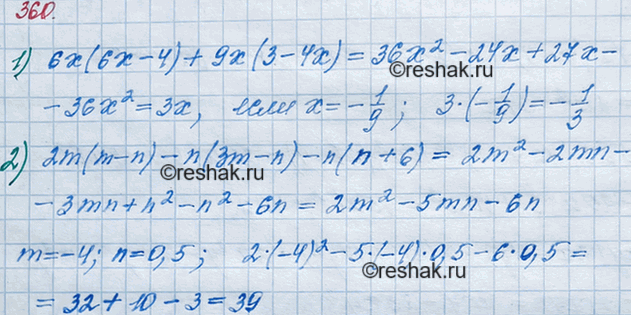 360.
1) 6x(6x-4)+9x(3-4x)=36x²-24x+27x-
©reshak.ru
-36x²=3x, если x=-1/9; 3·(-1/9)=-1/3
2) 2m(m-n)-n(3m-n)-n(n+6)=2m²-2mn-
©reshak.ru
-3mn+n²-n²-6n=2m²-5mn-6n
m=-4; n=0,5; 2·(-4)²-5·(-4)·0,5-6·0,5=
©reshak.ru
=32+10-3=39